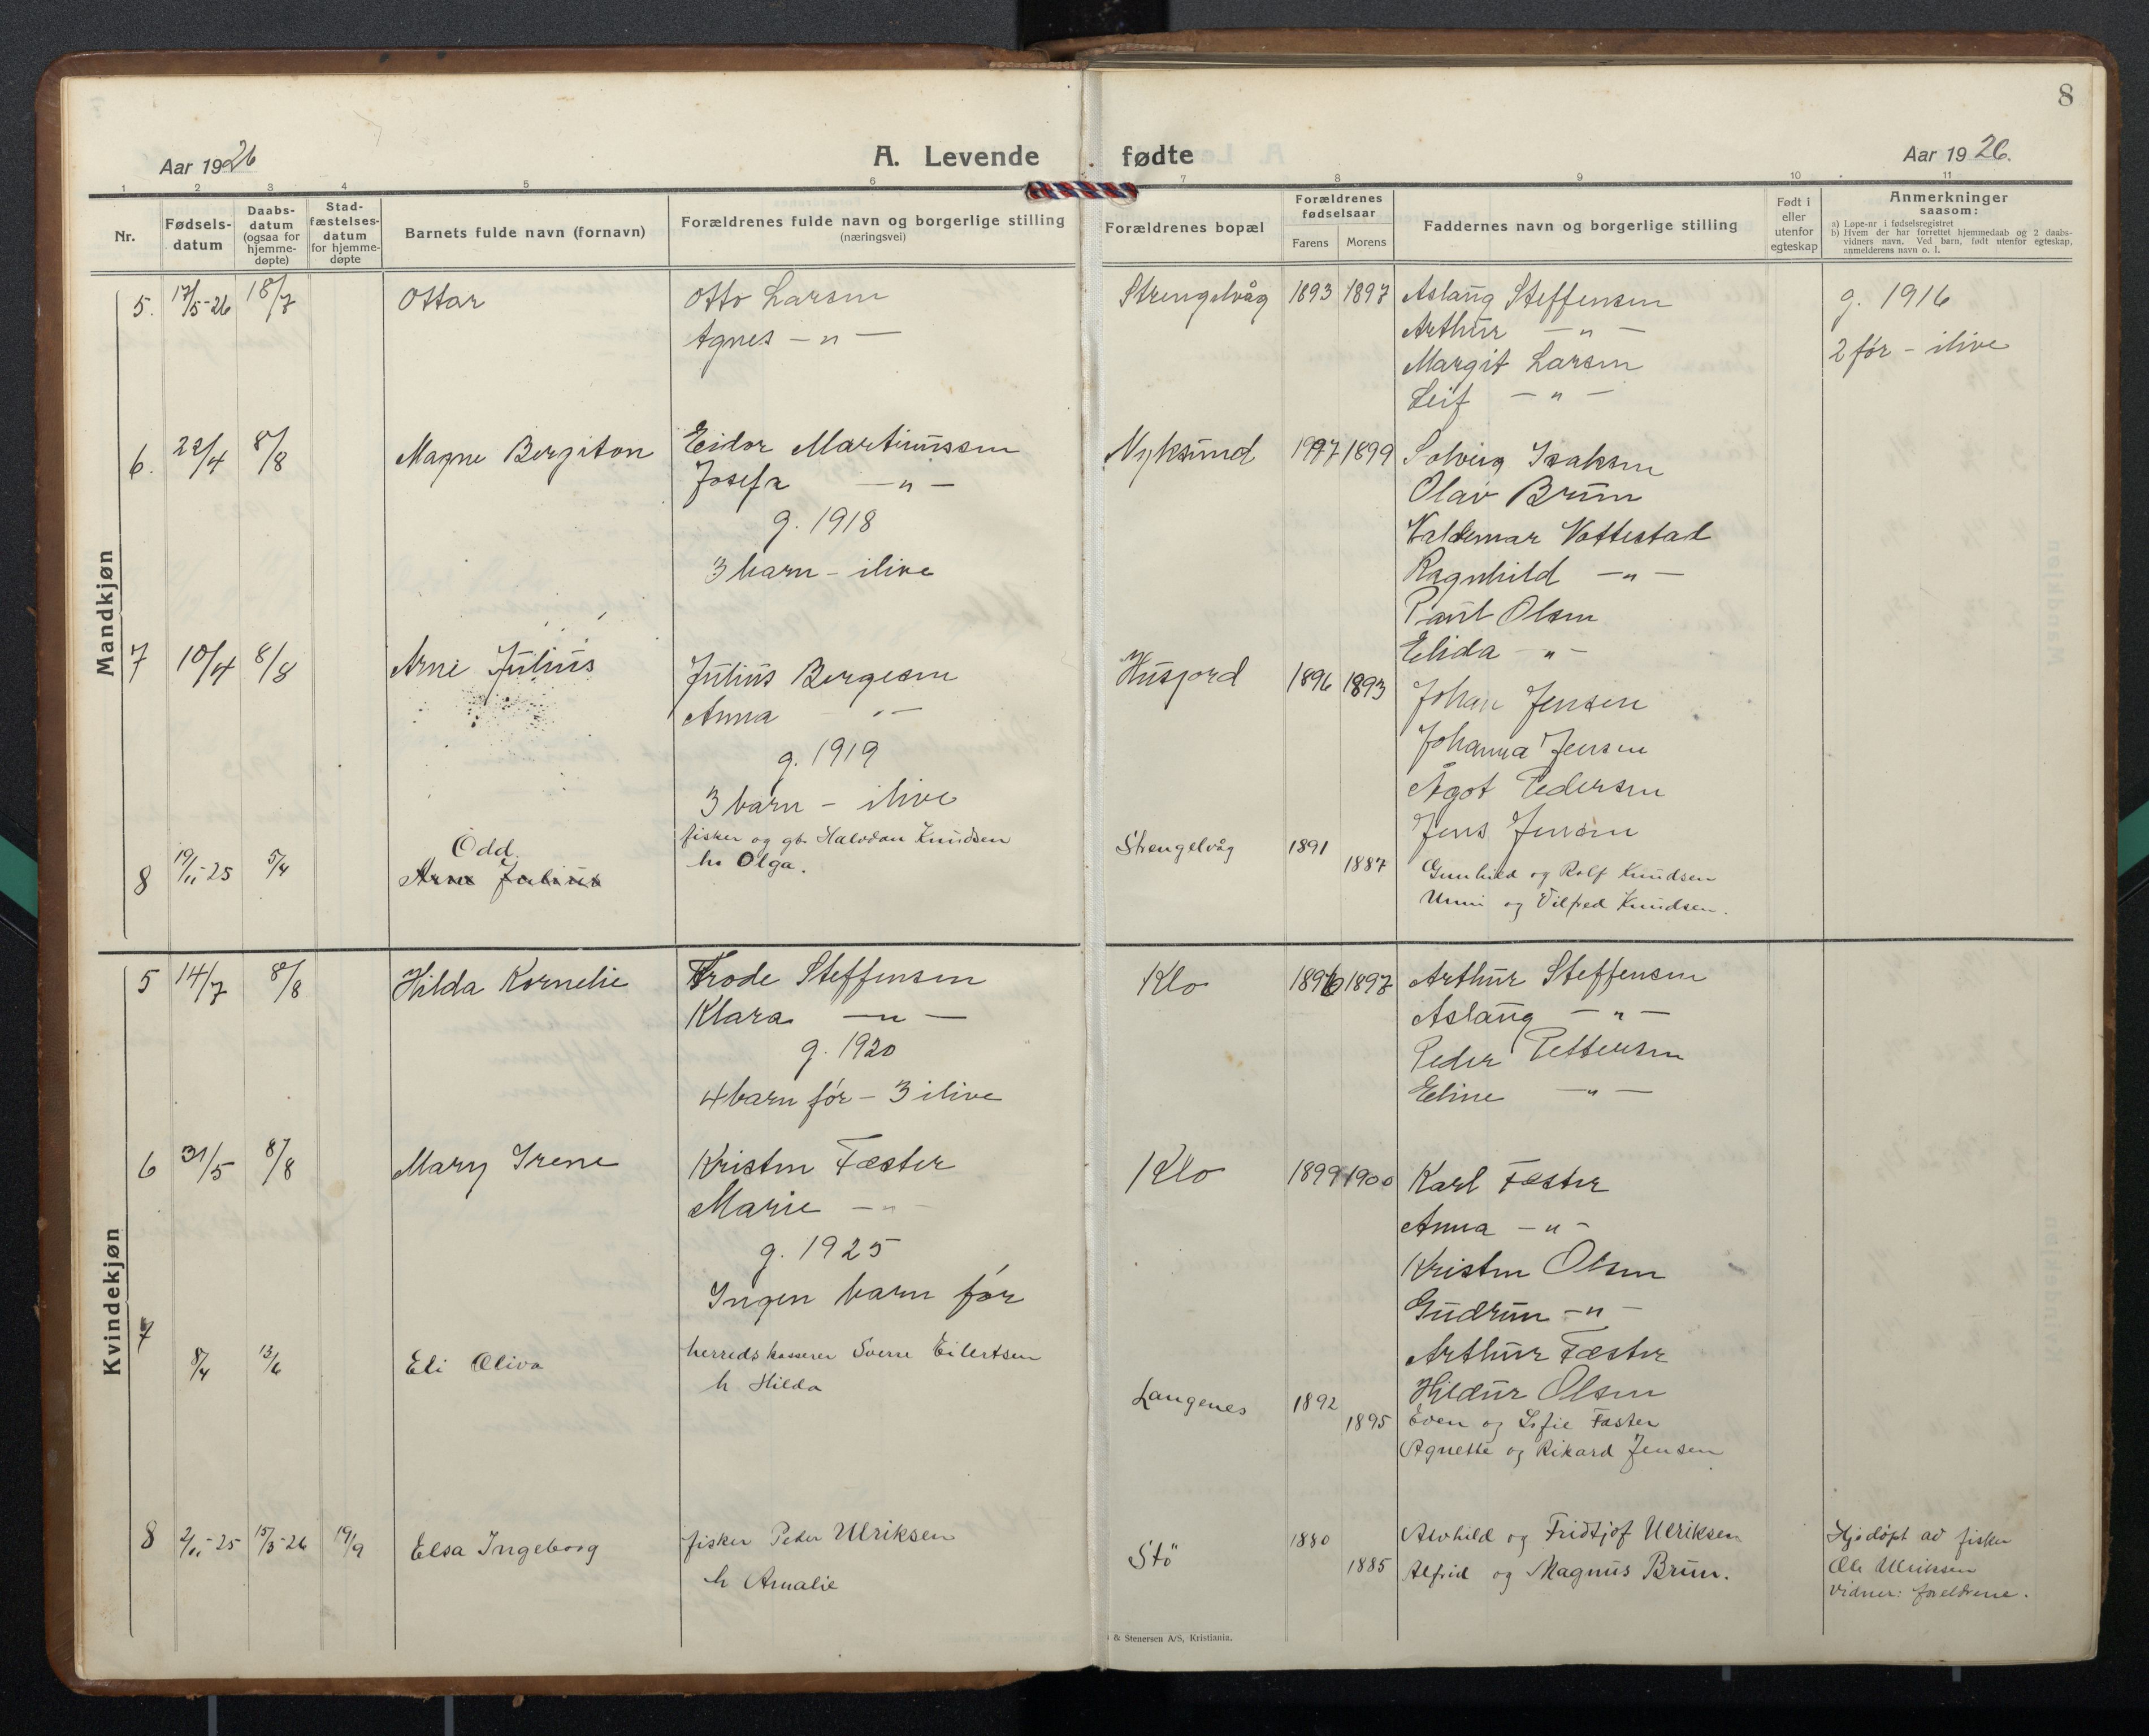 8
Aar 1926
A. Levende fødte
Aar 1926.
1 2 3 4 5 6 7 8 9 10 11
Nr.
Fødsels-
datum
Daabs-
datum
(ogsaa for
hjemme-
døpte)
Stad-
fæstelses-
datum
for hjemme-
døpte
Barnets fulde navn (fornavn)
Forældrenes fulde navn og borgerlige stilling
(næringsvei)
Forældrenes bopæl
Forældrenes
fødselsaar
Farens Morens
Faddernes navn og borgerlige stilling
Født i
eller
utenfor
egteskap
Anmerkninger
saasom:
a) Løpe-nr i fødselsregistret
b) Hvem der har forrettet hjemmedaab og 2 daabs-
vidners navn. Ved barn, født utenfor egteskap,
anmelderens navn o. l.
Mandkjøn
5. 17/5-26 18/7 Ottar Otto Larsen Strengelvåg 1893 1897 Aslaug Steffensen g. 1916
Agnes — " — Arthur — " —
Margit Larsen 2 før - ilive
Leif — " —
6. 22/4 8/8 Magne Bergiton Eidor Martinussen Nyksund 1897 1899 Solveig Isaksen
Josefa — " — Olav Brun
g. 1918 Valdemar Vottestad
3 barn - ilive Ragnhild — " —
Paul Olsen
Elida - " -
7 10/4 8/8 Arne Julius Julius Borgesen Husjord 1896 1893 Johan Jensen
Anna " — Johanna Jensen
g. 1919 Ågot Pedersen
3 barn - ilive Jens Jensen
8 19/11-25 5/4 Odd Arne Julius fisker og gb. Halvdan Knudsen Strengelvåg 1891
h. Olga. 1887 Gunhild og Rolf Knudsen
Unni og Vilfred Knudsen.
Kvindekjøn
5 14/7 8/8 Hilda Kornelie Frode Steffensen Klo 1896 1897 Arthur Steffensen
Klara — " — Aslaug — " —
g. 1920 Peder Pettersen
4 barn før - 3 ilive Eline — " —
6 31/5 8/8 Mary Irene Kristen Fæster Klo 1899 1900 Karl Fæster
Marie — " — Anna — " -
g. 1925 Kristen Olsen
Ingen barn før Gudrun — " —
Arthur Fæster
Hildur Olsen
7 8/4 13/6 Eli Oliva herredskasserer Sverre Eilertsen Langenes 1892
h Hilda 1895 Even og Sofie Fæster
Agnethe og Rikard Jensen
8 2/11-25 15/3-26 19/9 Elsa Ingeborg fisker Peder Ulriksen Stö 1880 Asvhild og Fridtjof Ulriksen Hjedøpt av fisker
h Amalie 1885 Alfrid og Magnus Brun. Ole Ulriksen
Vidner: foreldrene.
& Stenersen A/S, Kristiania.